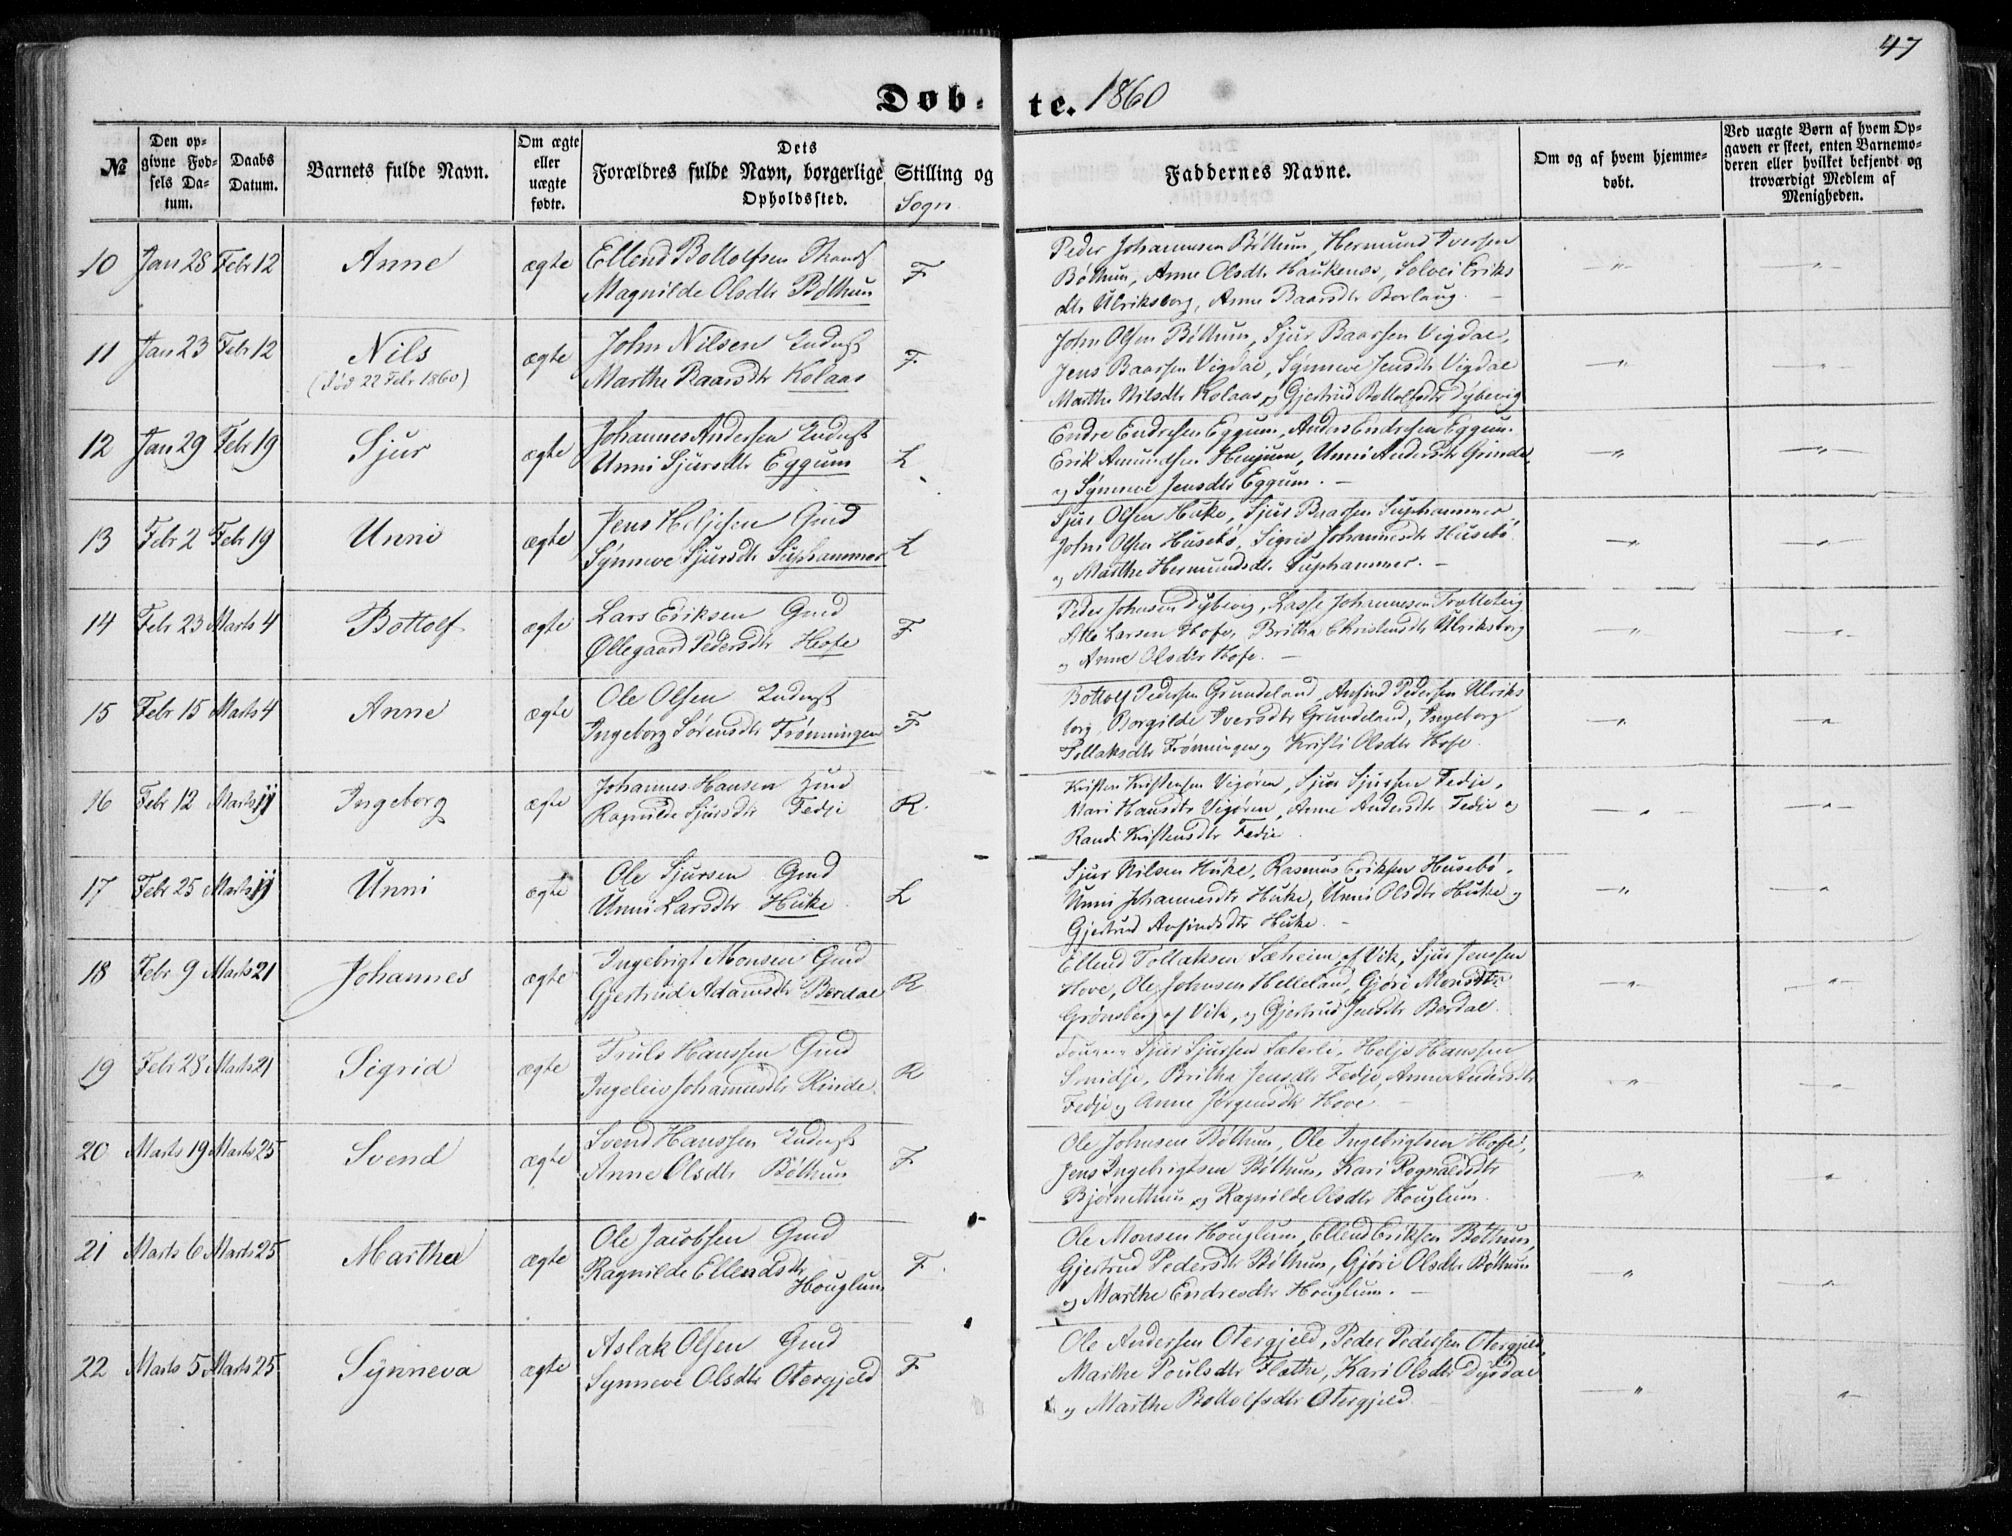 47
Døb-te. 1860
№
Den op-
givne Fød-
sels Da-
tum.
Daabs
Datum.
Barnets fulde Navn.
Om ægte
eller
uægte
fødte.
Dets
Forældres fulde Navn, borgerlige Stilling og
Opholdssted.
Sogn
Faddernes Navne.
Om og af hvem hjemme-
døbt.
Ved uægte Børn af hvem Op-
gaven er skeet, enten Barnemo-
deren eller hvilket bekjendt og
troværdigt Medlem af
Menigheden.
10 Jan 28 Febr 12 Anne ægte Ellend Bottolfsen Strand F
Magnilde Olsdtr Bøthun
Peder Johannesen Bøthun, Hermund Iversen
Bøthun, Anne Olsdtr Haukenes, Solvei Eriks
dtr Ulriksborg, Anne Baarsdtr Borlaug. -
11 Jan 23 Febr 12 Nils ægte John Nilsen Inderst F
(død 22 Febr 1860) Marthe Baarsdtr Kolaas
John Olsen Bøthum, Sjur Baarsen Vigdal,
Jens Baarsen Vigdal, Synneve Jensdtr Vigdal
Marthe Nilsdtr Kolaas og Gjertrud Bottolfsdtr Dybevig
12 Jan 29 Febr 19 Sjur ægte Johannes Andersen Inderst L
Unni Sjursdtr Eggum
Endre Endresen Eggum, Anders Endresen Eggum.
Erik Amundsen Henjum, Unni Andersdtr Grinde,
og Synneve Jensdtr Eggum. -
13 Febr 2 Febr 19 Unni ægte Jens Heljesen Gmd L
Synneve Sjursdtr Suphammer
Sjur Olsen Huke, Sjur Baarsen Suphammer,
John Olsen Husebø, Sigrid Johannesdtr Husebø
og Marthe Hermundsdtr Suphammer. -
14 Febr 23 Marts 4 Bottolf ægte Lars Eriksen Gmd F
Øllegaard Pedersdtr Hofe
Peder Johnsen Dybevig, Lasse Johannesen Trolleteig
Atle Larsen Hofe, Britha Christensdtr Ulriksborg
og Anne Olsdtr Hofe. -
15 Febr 15 Marts 4 Anne ægte Ole Olsen Inderst F
Ingeborg Sørensdtr Frønningen
Bottolf Pedersen Grundeland, Anfind Pedersen Ulriks
borg, Borgilde Iversdtr Grundeland, Ingeborg
Tollaksdtr Frønningen og Kristi Olsdtr Hofe.
16 Febr 12 Marts 11 Ingeborg ægte Johannes Hansen Hmd R.
Ragnilde Sjursdtr Fedje
Kristen Kristensen Vigøren, Sjur Sjursen Fedje,
Mari Hansdtr Vigøren, Anne Andersdtr Fedje og
Randi Kristensdtr Fedje.
17 Febr 25 Marts 11 Unni ægte Ole Sjursen Gmd L
Unni Larsdtr Huke
Sjur Nilsen Huke, Rasmus Eriksen Husebø.
Unni Johannesdtr Huke, Unni Olsdtr Huke og
Gjertrud Anfindsdtr Huke. -
18 Febr 9 Marts 21 Johannes ægte Ingebrigt Monsen Gmd R
Gjertrud Adamsdtr Berdal
Ellend Tollaksen Sæheim af Vik, Sjur Jenssen
Hove, Ole Johnsen Helleland, Gjøri Monsdtr
Grønsberg af Vik, og Gjertrud Jensdtr Berdal.
19 Febr 28 Marts 21 Sigrid ægte Truls Hanssen Gmd R
Ingeleiv Johannesdtr Rinde.
Sjur Sjursen Sæterli, Helje Hanssen
Smidje, Britha Jensdtr Fedje, Anne Andersdtr
Fedje og Anne Jørgensdtr Hove
20 Marts 19 Marts 25 Svend ægte Svend Hanssen Inderst F
Anne Olsdtr Bøthun
Ole Johnsen Bøthum, Ole Ingebrigtsen Hofe,
Jens Ingebrigtsen Bøthum, Kari Rognaldsdtr
Bjørnethun og Ragnilde Olsdtr Houglum.
21 Marts 6 Marts 25 Martha ægte Ole Jacobsen Gmd F.
Ragnilde Ellendsdtr
Houglum
Ole Monsen Houglum, Ellend Eriksen Bøthun,
Gjertrud Pedersdtr Bøthun, Gjøri Olsdtr Bøthun
og Marthe Endresdtr Houglum. -
22 Marts 5 Marts 25 Synneva ægte Aslak Olsen Gmd F
Synneve Olsdtr Otergjeld
Ole Andersen Otergjeld, Peder Pedersen Otergjeld,
Marthe Poulsdtr Flathe, Kari Olsdtr Dysdal
og Marthe Bottolfsdtr Otergjeld.